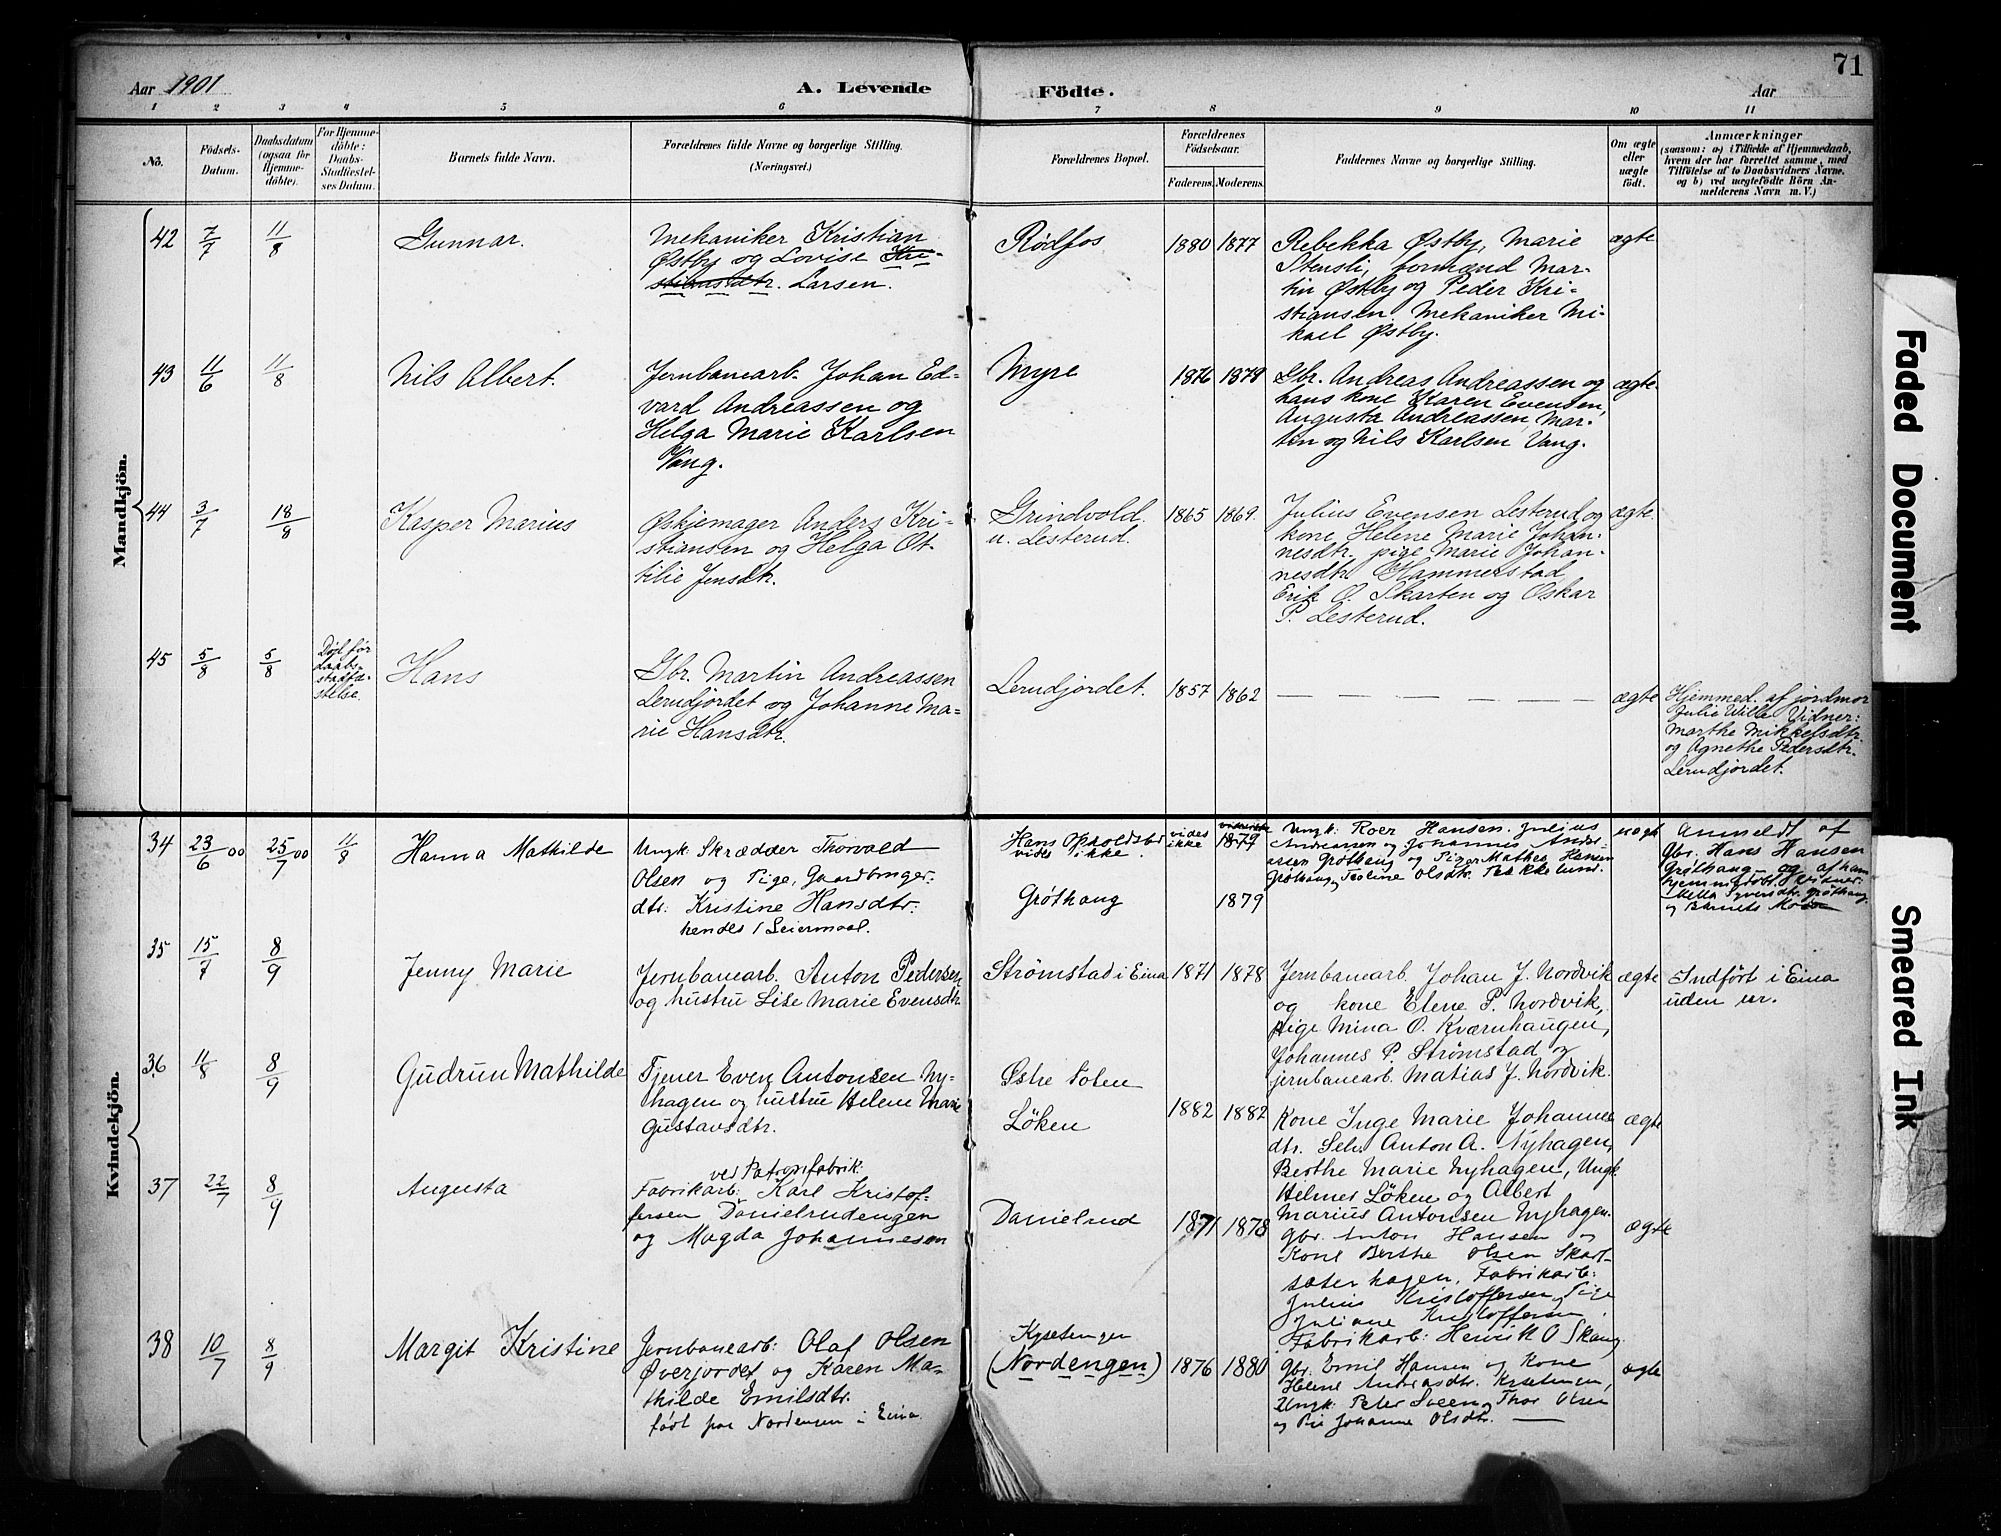 71
Aar 1901
A. Levende
Födte.
Aar
1 2 3 4 5 6 7 8 9 10 11
No.
Födsels-
Datum.
Daabsdatum
(ogsaa for
Hjemme-
döbte).
For Hjemme-
döbte:
Daabs-
Stadfæstel-
ses Datum.
Barnets fulde Navn.
Forældrenes fulde Navne og borgerlige Stilling.
(Næringsvei.)
Forældrenes Bopæl.
Forældrenes
Födselsaar.
Faderens.
Moderens.
Faddernes Navne og borgerlige Stilling.
Om ægte
eller
uægte
födt.
Anmærkninger
(saasom: a) i Tilfælde af Hjemmedaab,
hvem der har forrettet samme, med
Tilföielse af to Daabsvidners Navne,
og b) ved uægtefödte Börn An-
melderens Navn m. V.)
Mandkjön.
42 7/7 11/8 Gunnar.
Mekaniker Kristian
Østby og Lovise Kri-
stiansdtr. Larsen.
Rødfos 1880 1877
Rebekka Østby, Marie
Stensli, formænd Mar-
tin Østby og Peder Kri-
stiansen. Mekaniker Mi-
kael Østby.
ægte
43 11/6 11/8 Nils Albert.
Jernbanearb. Johan Ed-
vard Andreassen og
Helga Marie Karlsen
Vang.
Myre 1876 1878
Gbr. Andreas Andreassen og
hans kone Karen Evensen,
Augusta Andreassen Mar-
tin og Nils Karlsen Vang.
ægte.
44 3/7 18/8 Kasper Marius
Øskjemager Anders Kri-
stiansen og Helga Ot-
tilie Jensdtr.
Grindvold
u. Lesterud.
1865 1869.
Julius Evensen Lesterud og
kone Helene Marie Johan-
nesdtr. pige Marie Johan-
nesdtr. Hammerstad
Erik O. Skarten og Oskar
P. Lesterud.
ægte.
45 5/8 5/8
Död før
daabs-
stadfæ-
stelse.
Hans
Gbr. Martin Andreassen
Lerudjordet og Johanne Ma-
rie Hansdtr.
Lerudjordet. 1857 1862
— — — — — —
ægte
Hjemmed. af jordmor
Julie Wille Vidner:
Marthe Mikkelsdtr.
og Agnethe Pedersdtr.
Lerudjordet.
Kvindekjön.
34 23/6 00 25/7 00 11/8 Hanna Mathilde
Ungk. Skrædder Thorvald
Olsen og Pige, Gaardbruger-
dtr: Kristine Hansdtr.
hendes 1 Leiermaal.
Hans Opholdsted
vides ikke.
Grøthaug
vides
ikke
1879
1879
Ungk: Roer Hansen. Julius
Andreassen og Johannes Andr-
assen Grøthaug og Piger Mathea Hansen
Grøthaug og Teoline Olsdtr. Bakkelund.
uægt
Anmeldt af
gbr. Hans Hansen
Grøthaug og af ham
hjemmedöbt. Vidner:
og Barnets Moder
35 15/7 8/9 Jenny Marie
Jernbanearb. Anton Pedersen
og hustru Lise Marie Evensdtr
Strömstad i Eina 1871 1878
Jernbanearb. Johan J. Nordvik
og kone Elene P. Nordvik,
pige Mina O. Kværnhaugen,
Johannes P. Strömstad og
jernbanearb. Matias J. Nordvik.
ægte
Indfört i Eina
uden nr.
36 11/8 8/9 Gudrun Mathilde
Tjener Even Antonsen Ny-
hagen og hustru Helene Marie
Gustavsdtr.
Østre Toten
Löken
1882 1882
Kone Inge Marie Johannes
dtr. Selv. Anton A. Nyhagen,
Berthe Marie Nyhagen, Ungk.
Helmer Löken og Albert
Marius Antonsen Nyhagen.
ægte
37 22/7 8/9 Augusta
ved Patronfabrik:
Fabrikarb: Karl Kristof-
fersen Danielrudengen
og Magda Johannesen
Danielrud 1871 1878
gbr. Anton Hansen og
Kone Berthe Olsen Skart-
sæterhagen. Fabrikarb:
Julius Kristoffersen, Pige
Juliane Kristoffersen,
Fabrikarb: Henrik O Skaug
ægte
38 10/7 8/9 Margit Kristine
Jernbanearb: Olaf Olsen
Øverjordet og Karen Ma-
thilde Emilsdtr.
født paa Nordengen i Eina.
(Nordengen) 1876 1880
gbr. Emil Hansen og Kone
Helene Andreasdtr.
Ungk: Peter Sveen, Thor Olsen
og Pige Johanne Olsdtr. —
ægte
Faded Document
Smeared Ink